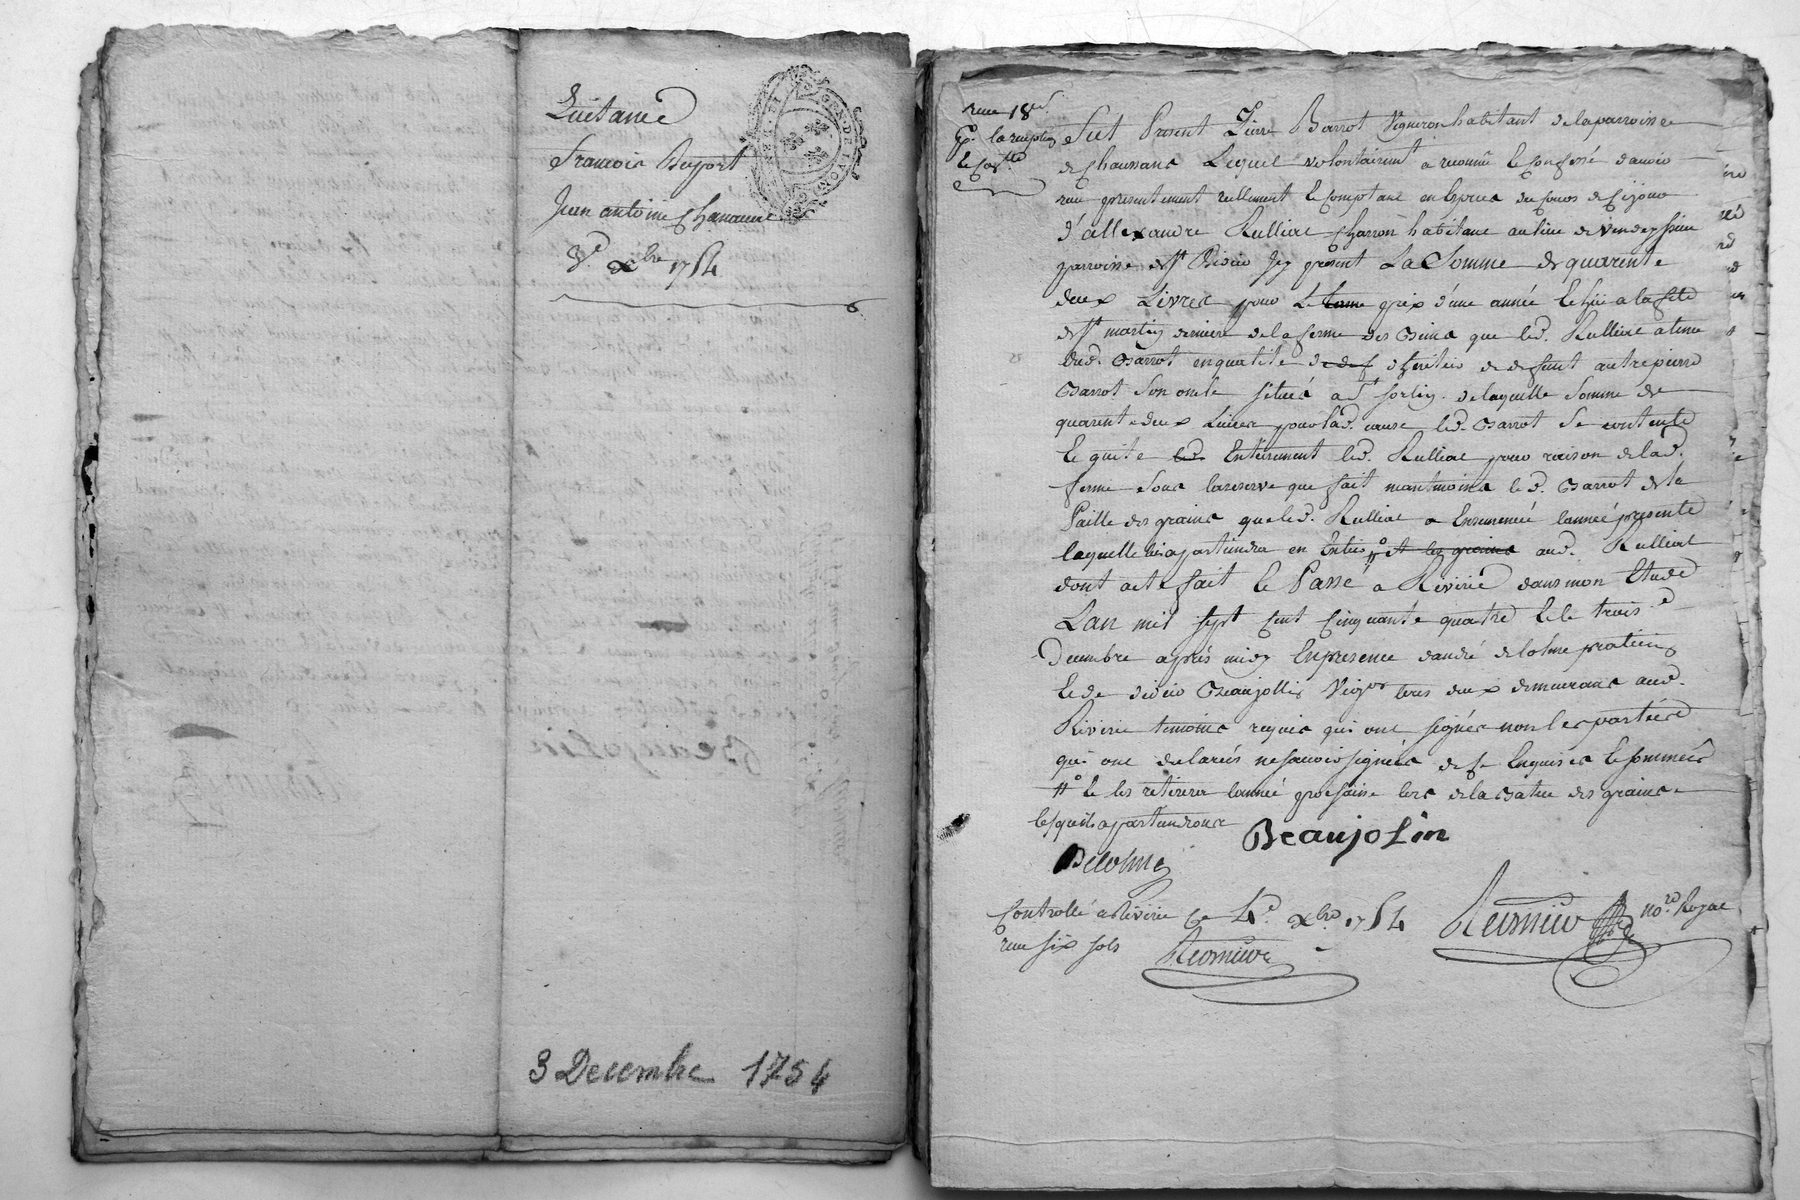 Quitance
François Duport
Jean antoine Chanavat
3e. xbre 1754
3 Decembre 1754
receu 18 s
la reception
le Cart
fut Present Pierre Barrot Vigneron habitant de la parroisse
de Chaussans Lequel volontairemt a reconnu et Confessé d'avoir
receu presentement reellement et Comptant en Espece du Cours de ce jour
d'allexandre Rulliat Charron habitant au lieu de
parroisse de St Didier Icy present La Somme de quarente
deux Livres pour Le terme prix d'une année Echue a la fete
de St martin derniere de la ferme des biens que led. Rulliat a tenu
dud. Barrot en qualité de def d'heritier de deffunt autre pierre
Barrot Son oncle situés a St sorlin. de laquelle Somme de
quarente deux Livres pour lad. cause led. Barrot Se contente
et quite led Entierement led. Rulliat pour raison de lad.
ferme Sous la reserve que fait neantmoins led. Barrot de la
Paille des grains que led. Rulliat a Ensemencé l'année presente
laquelle luy apartiendra en Entier # et les grains aud. Rulliat
dont acte fait et Passé a Riverie dans mon Etude
L'an mil sept Cent Cinquante quatre et le trois e
Decembre après midy En presence d'andré delolme praticien
et de didier Beaujollin Vigner tous deux demeurans aud.
Riverie temoins requis qui ont signés non les parties
qui ont declarées ne sçavoir signer de ce Enquises et sommées
# et les retirera l'année prochaine lors de la batue des grains
lesquels apartiendront
Beaujolin
Delolme
Controllé a Riverie le 4e. xbre 1754
receu six sols
no.re Royal